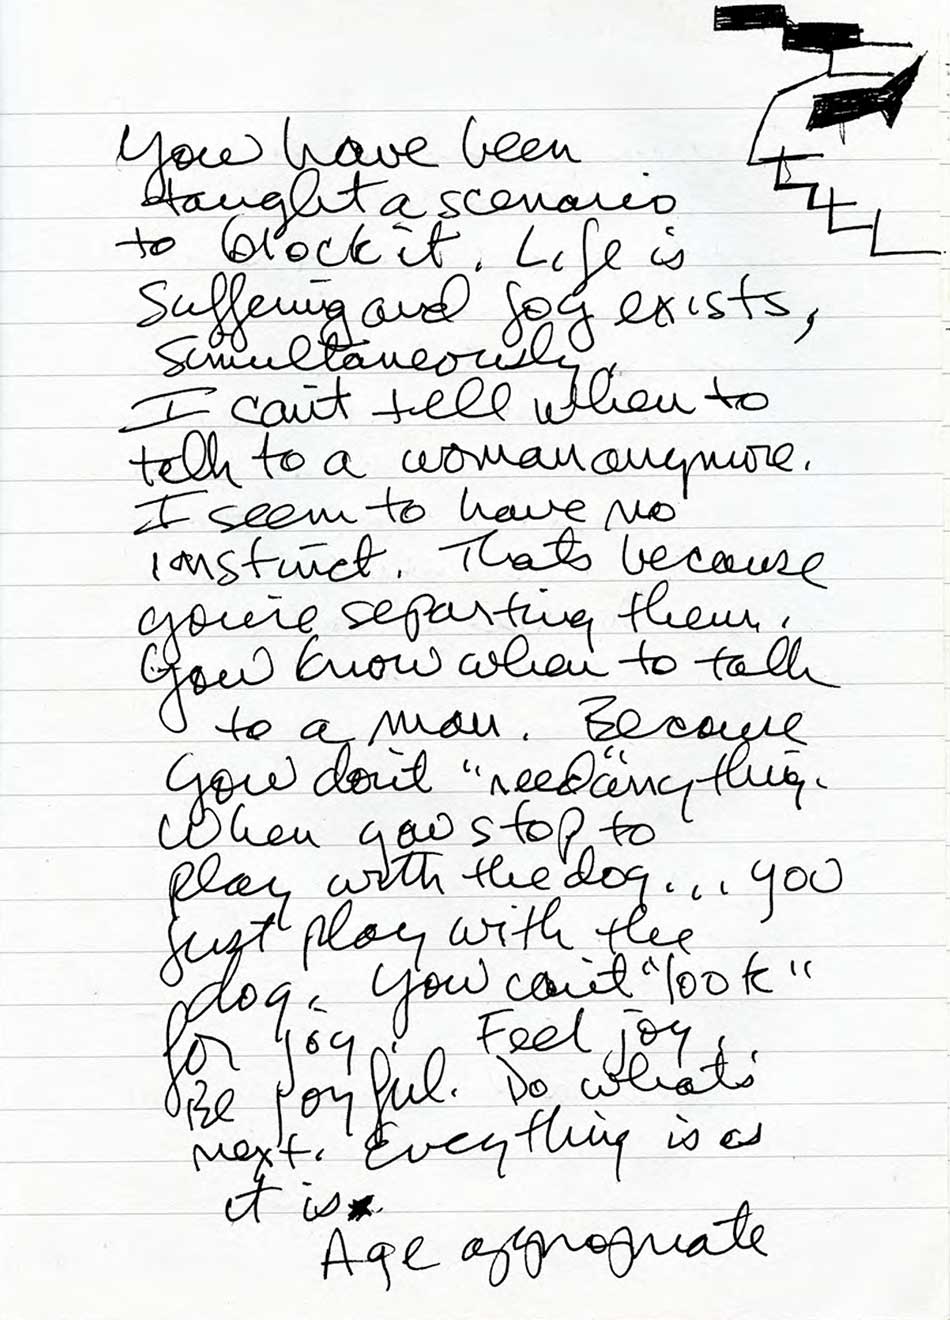 You have been
taught a scenario
to block it. Life is
Suffering and joy exists,
simultaneously.
I can't tell when to
talk to a woman anymore.
I seem to have no
instinct. Thats because
you're separting them.
You know when to talk
to a man. Because
you don't "need" anything.
When you stop to
play with the dog... you
just play with the
dog. You can't "look"
for joy. Feel joy.
Be joyful. Do what's
next. Everything is as
it is.
Age appropriate